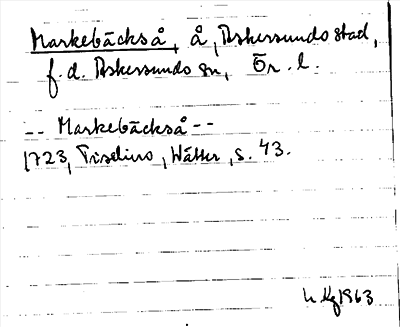 Markebäckså, å, Askersunds stad,
f.d. Askersunds sn, Ör. l.
-- Markebäckså --
1723, Tiselius, Vätter, s. 43.
1963